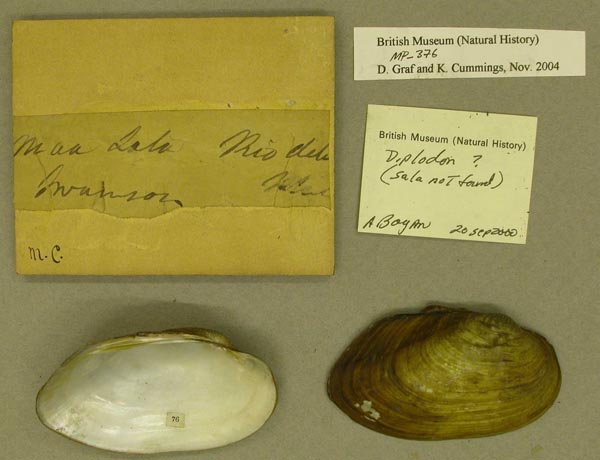 British Museum (Natural History)
MP-376
D. Graf and K. Cummings, Nov. 2004
British Museum (Natural History)
Diplodon ?
(sala not found)
A Bogan 20 Sep 2000
Lata Rio dela
Swainson
M.C.
76